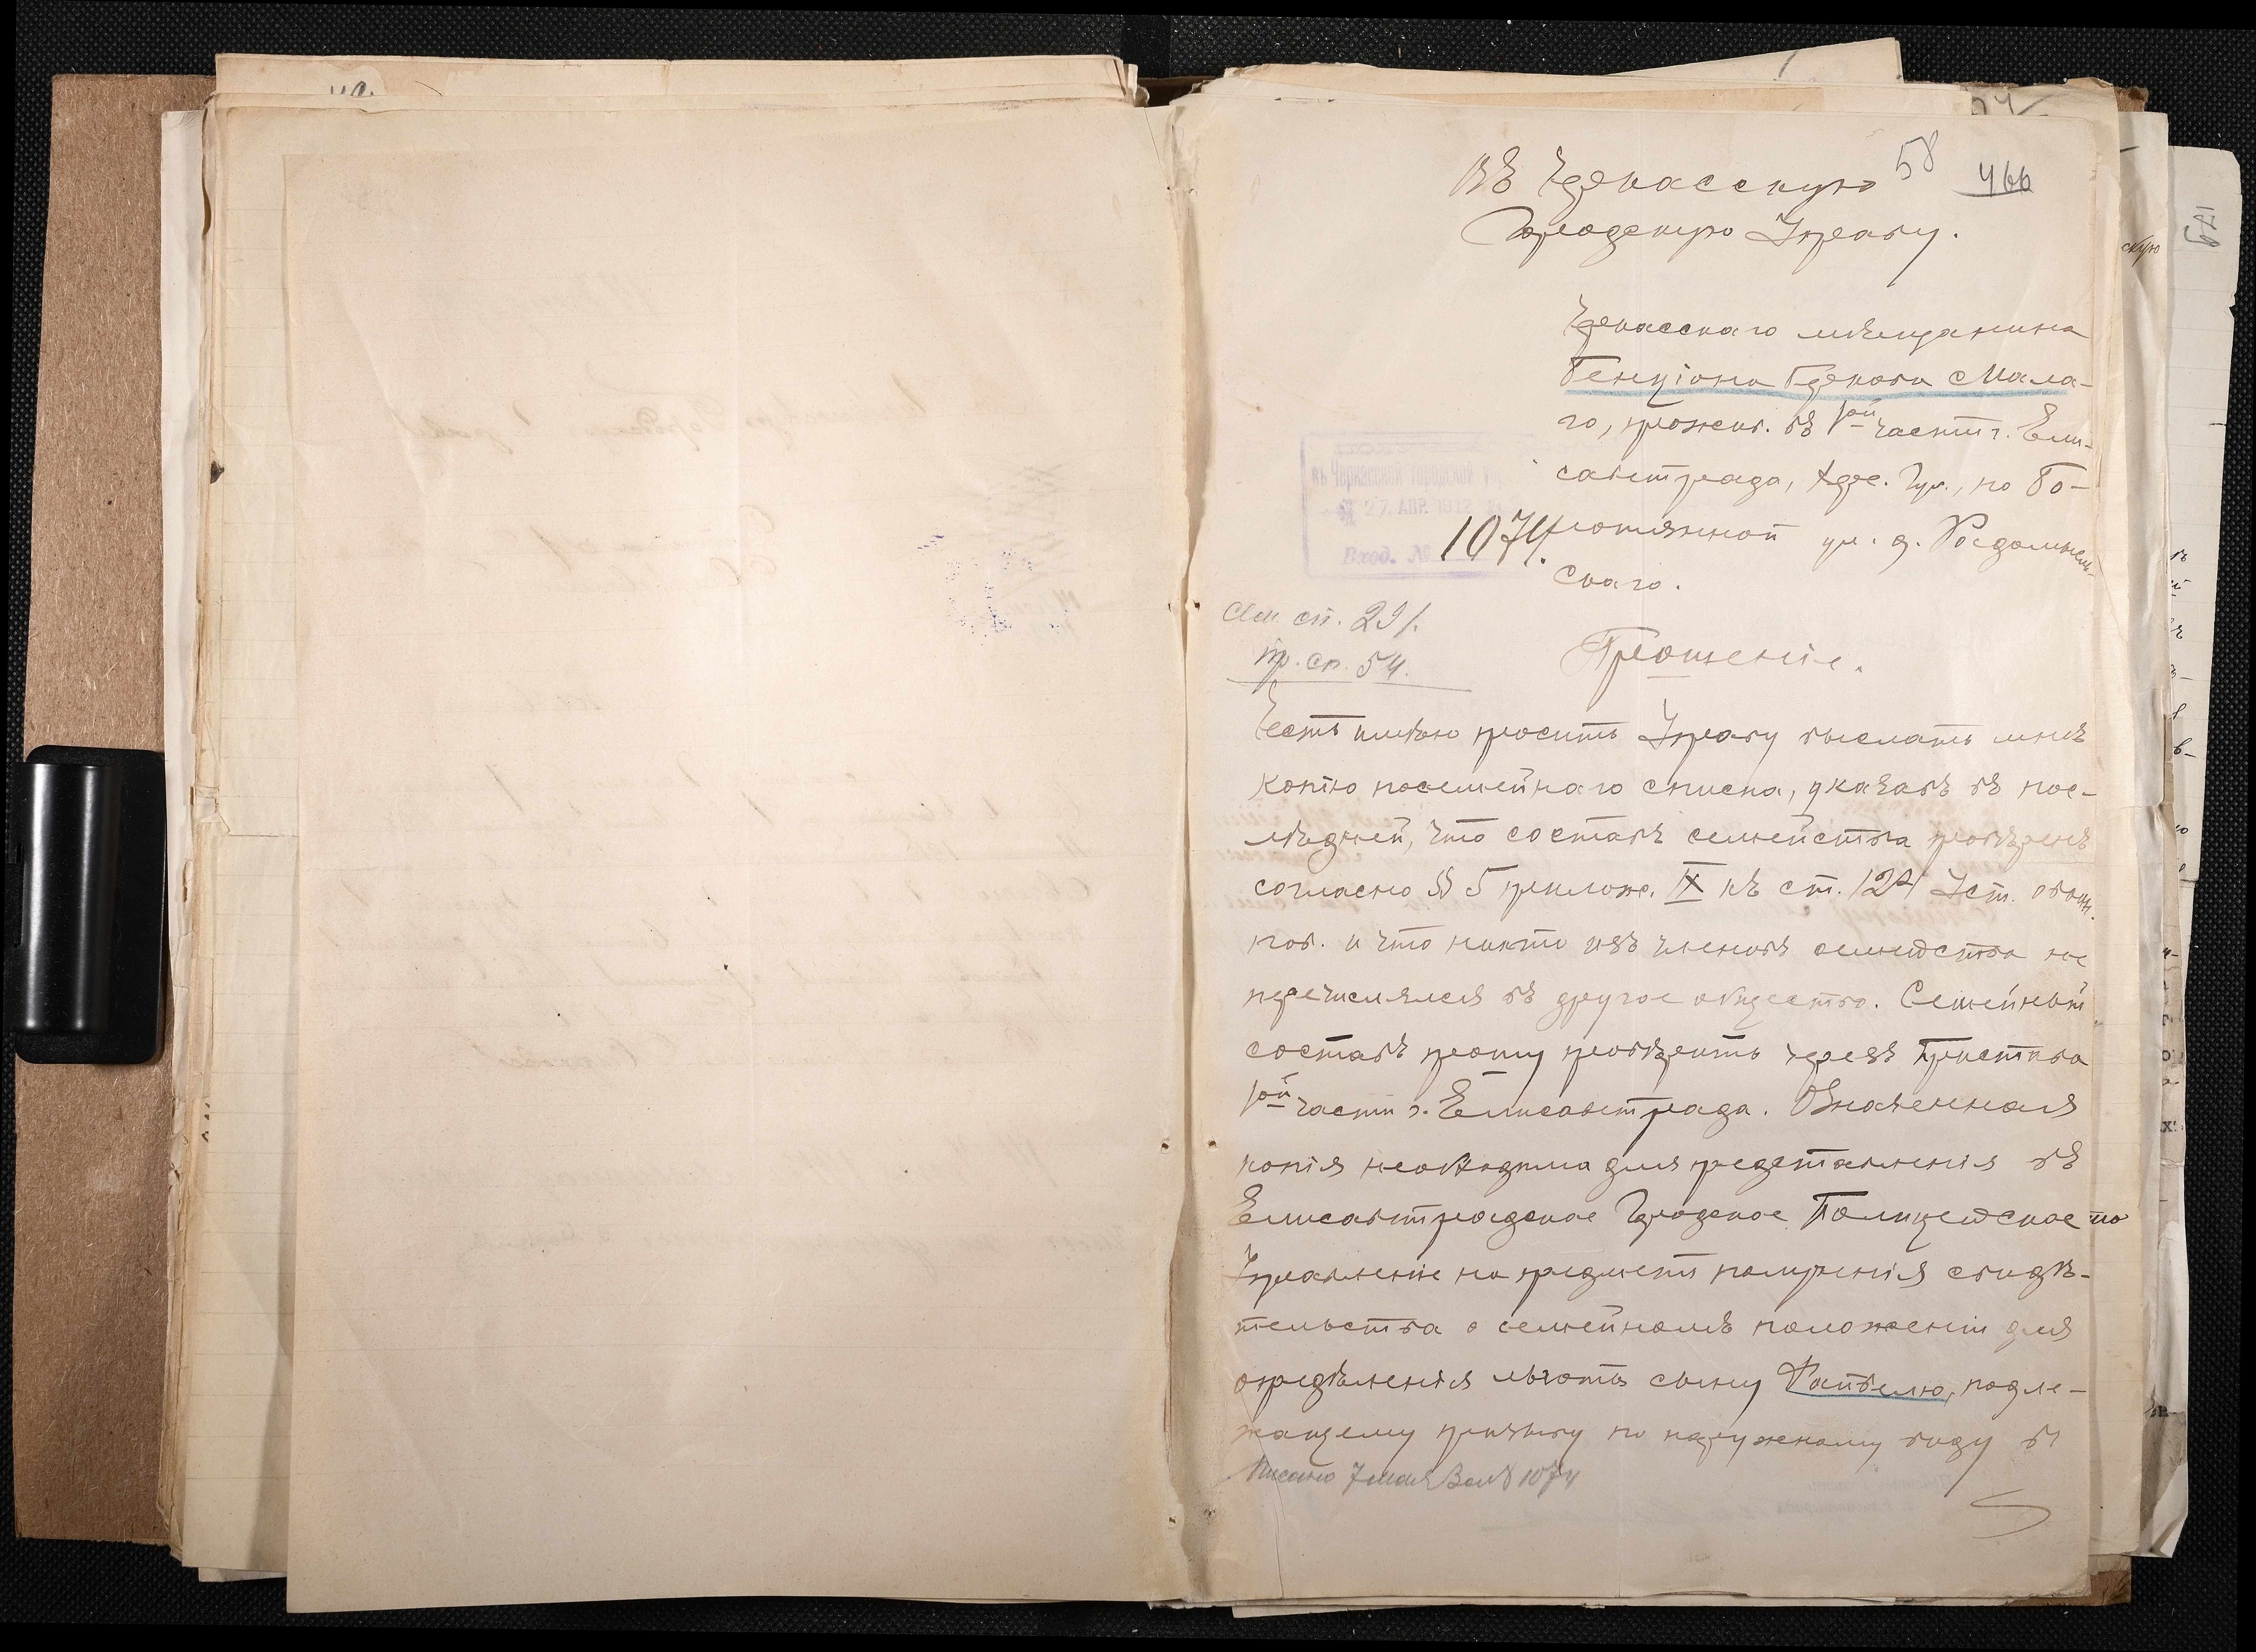 58
466
Въ Черкасскую
Городскую Управу.
Черкасскаго мѣщанина
Бенціона Беркова Мала-
го, прожив. въ 1ой части г. Ели-
саветграда, Хер. Губ., по Бо-
ул. д.
скаго.
въ Черкасской городской
27. АПР. 1912
Вход. №
1074.
Ал. сп. 291.
пр. сп. 54.
Прошеніе.
Честь имѣю просить Управу выслать мнѣ
копію посемейнаго списка, указавъ въ пос-
лѣдней, что составъ семейства провѣренъ
согласно § 5 прилож. IX къ ст. 124 Уст. о воин.
пов. и что никто изъ членовъ семейства не
перечислялся въ другое общество. Семейный
составъ прошу провѣрить черезъ Пристава
1ой части г. Елисаветграда. Означенная
копія необходима для представленія въ
Елисаветградское Городское Полицейское
Управленіе на предметъ полученія свидѣ-
тельства о семейномъ положеніи для
опредѣленія льготы сыну Файвелю, подле-
жащему призыву по наружному виду въ
Писано 7 мая за № 1074